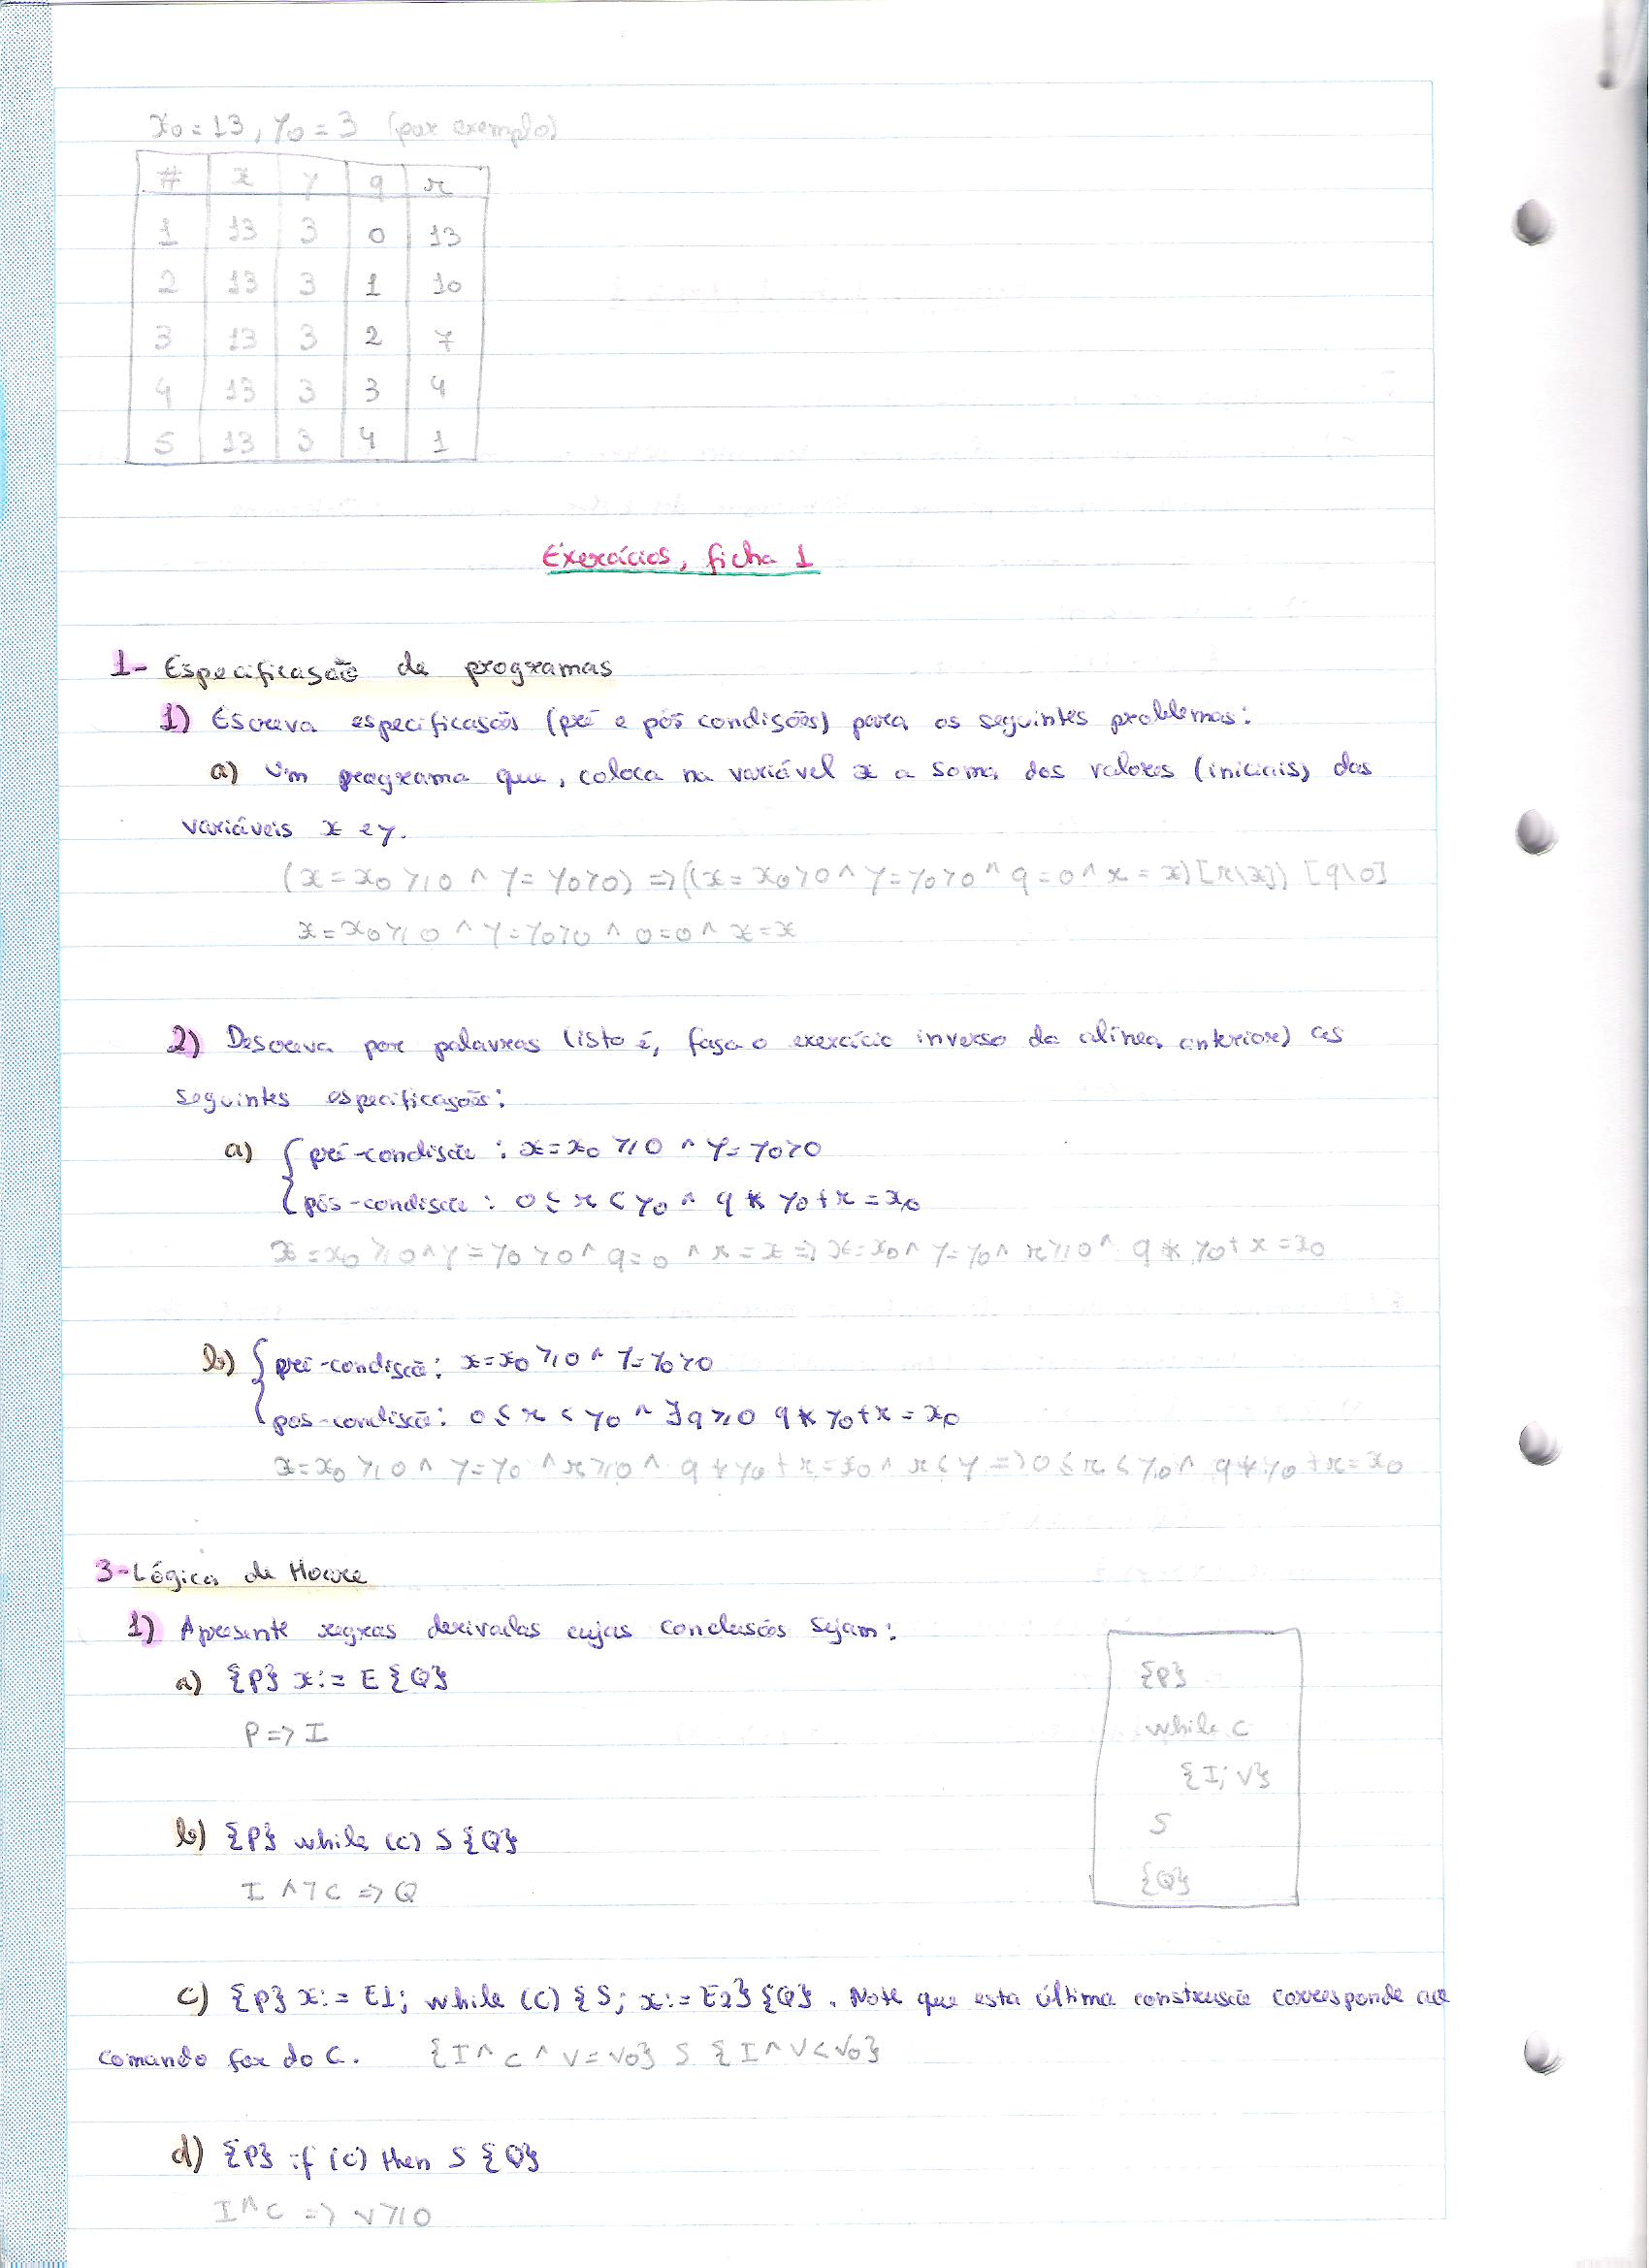 x0 = 13, y0 = 3 (por exemplo)
# x y q r
1 13 3 0 13
2 13 3 1 10
3 13 3 2 7
4 13 3 3 4
5 13 3 4 1
Exercícios, ficha 1
1- Especificação de programas
1) Escreva especificações (pré e pós condições) para os seguintes problemas:
a) Um programa que, coloca na variável x a soma dos valores (iniciais) das
variáveis x e y.
(x = x0 ≥ 0 ∧ y = y0 > 0) => ((x = x0 > 0 ∧ y = y0 > 0 ∧ q = 0 ∧ r = x) [r\x]) [q\0]
x = x0 ≥ 0 ∧ y = y0 > 0 ∧ 0 = 0 ∧ x = x
2) Descreva por palavras (isto é, faça o exercício inverso da alínea anterior) as
seguintes especificações:
a) { pré-condição : x = x0 ≥ 0 ∧ y = y0 > 0
pós-condição : 0 ≤ r < y0 ∧ q * y0 + r = x0
x = x0 ≥ 0 ∧ y = y0 > 0 ∧ q = 0 ∧ r = x => x = x0 ∧ y = y0 ∧ r ≥ 0 ∧ q * y0 + r = x0
b) { pré-condição : x = x0 ≥ 0 ∧ y = y0 > 0
pós-condição : 0 ≤ r < y0 ∧ ∃q ≥ 0 q * y0 + r = x0
x = x0 ≥ 0 ∧ y = y0 ∧ r ≥ 0 ∧ q * y0 + r = x0 ∧ r < y => 0 ≤ r < y0 ∧ q * y0 + r = x0
3- Lógica de Hoare
1) Apresente regras derivadas cujas conclusões sejam:
a) {P} x := E {Q}
P => I
b) {P} while (c) S {Q}
I ∧ ¬c => Q
{P}
while c
{I; V}
S
{Q}
c) {P} x := E1; while (c) {S; x := E2} {Q}. Note que esta última construção corresponde ao
comando for do C. {I ∧ c ∧ V = v0} S {I ∧ V < v0}
d) {P} if (c) then S {Q}
I ∧ c => V ≥ 0